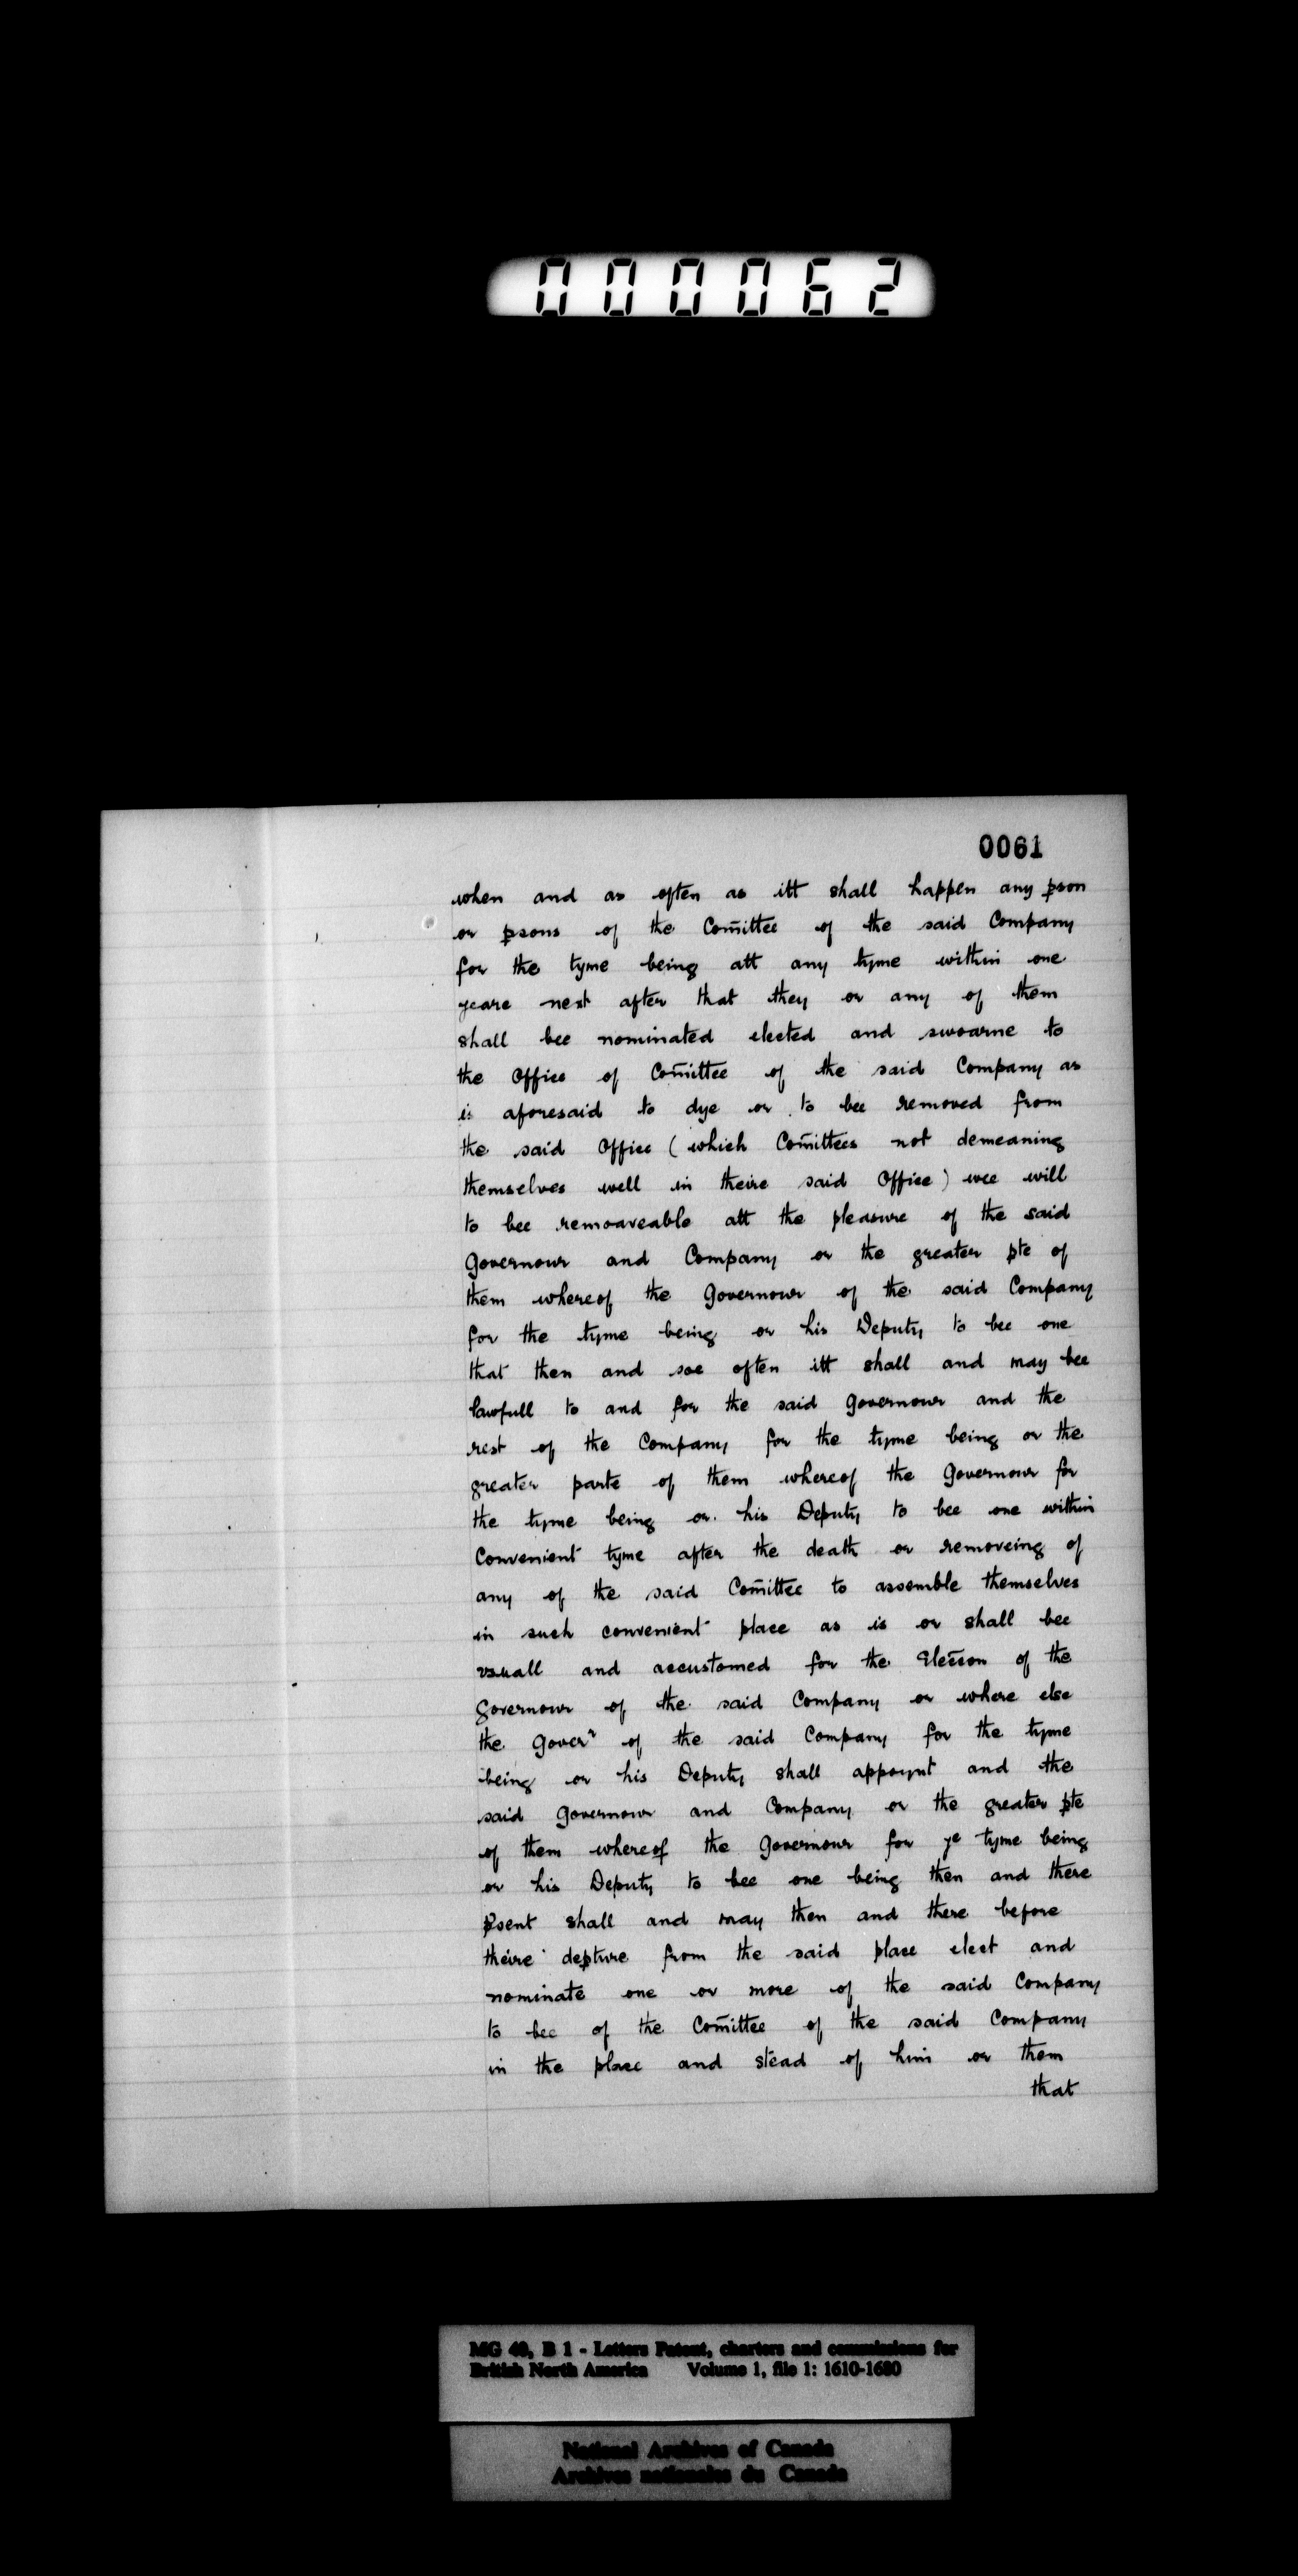 000062
0061
when and as often as itt shall happen any pson
or psons of the Com̃ittee of the said Company
for the tyme being att any tyme within one
yeare next after that they or any of them
shall bee nominated elected and swoarne to
the Office of Com̃ittee of the said Company as
is aforesaid to dye or to bee removed from
the said Office (which Com̃ittees not demeaning
themselves well in theire said Office) wee will
to bee removeable att the pleasure of the said
Governour and Company or the greater pte of
them whereof the Governour of the said Company
for the tyme being or his Deputy to bee one
that then and soe often itt shall and may bee
lawfull to and for the said Governour and the
rest of the Company for the tyme being or the
greater parte of them whereof the Governour for
the tyme being or his Deputy to bee one within
Convenient tyme after the death or removeing of
any of the said Com̃ittee to assemble themselves
in such convenient place as is or shall bee
vsuall and accustomed for the Elec̃con of the
Governour of the said Company or where else
the Goverʳ of the said Company for the tyme
being or his Deputy shall appoynt and the
said Governour and Company or the greater pte
of them whereof the Governour for yᵉ tyme being
or his Deputy to bee one being then and there
psent shall and may then and there before
theire depture from the said place elect and
nominate one or more of the said Company
to bee of the Com̃ittee of the said Company
in the place and stead of him or them
that
MG 40, B 1 - Letters Patent, charters and commissions for
British North America Volume 1, file 1: 1610-1680
National Archives of Canada
Archives nationales du Canada